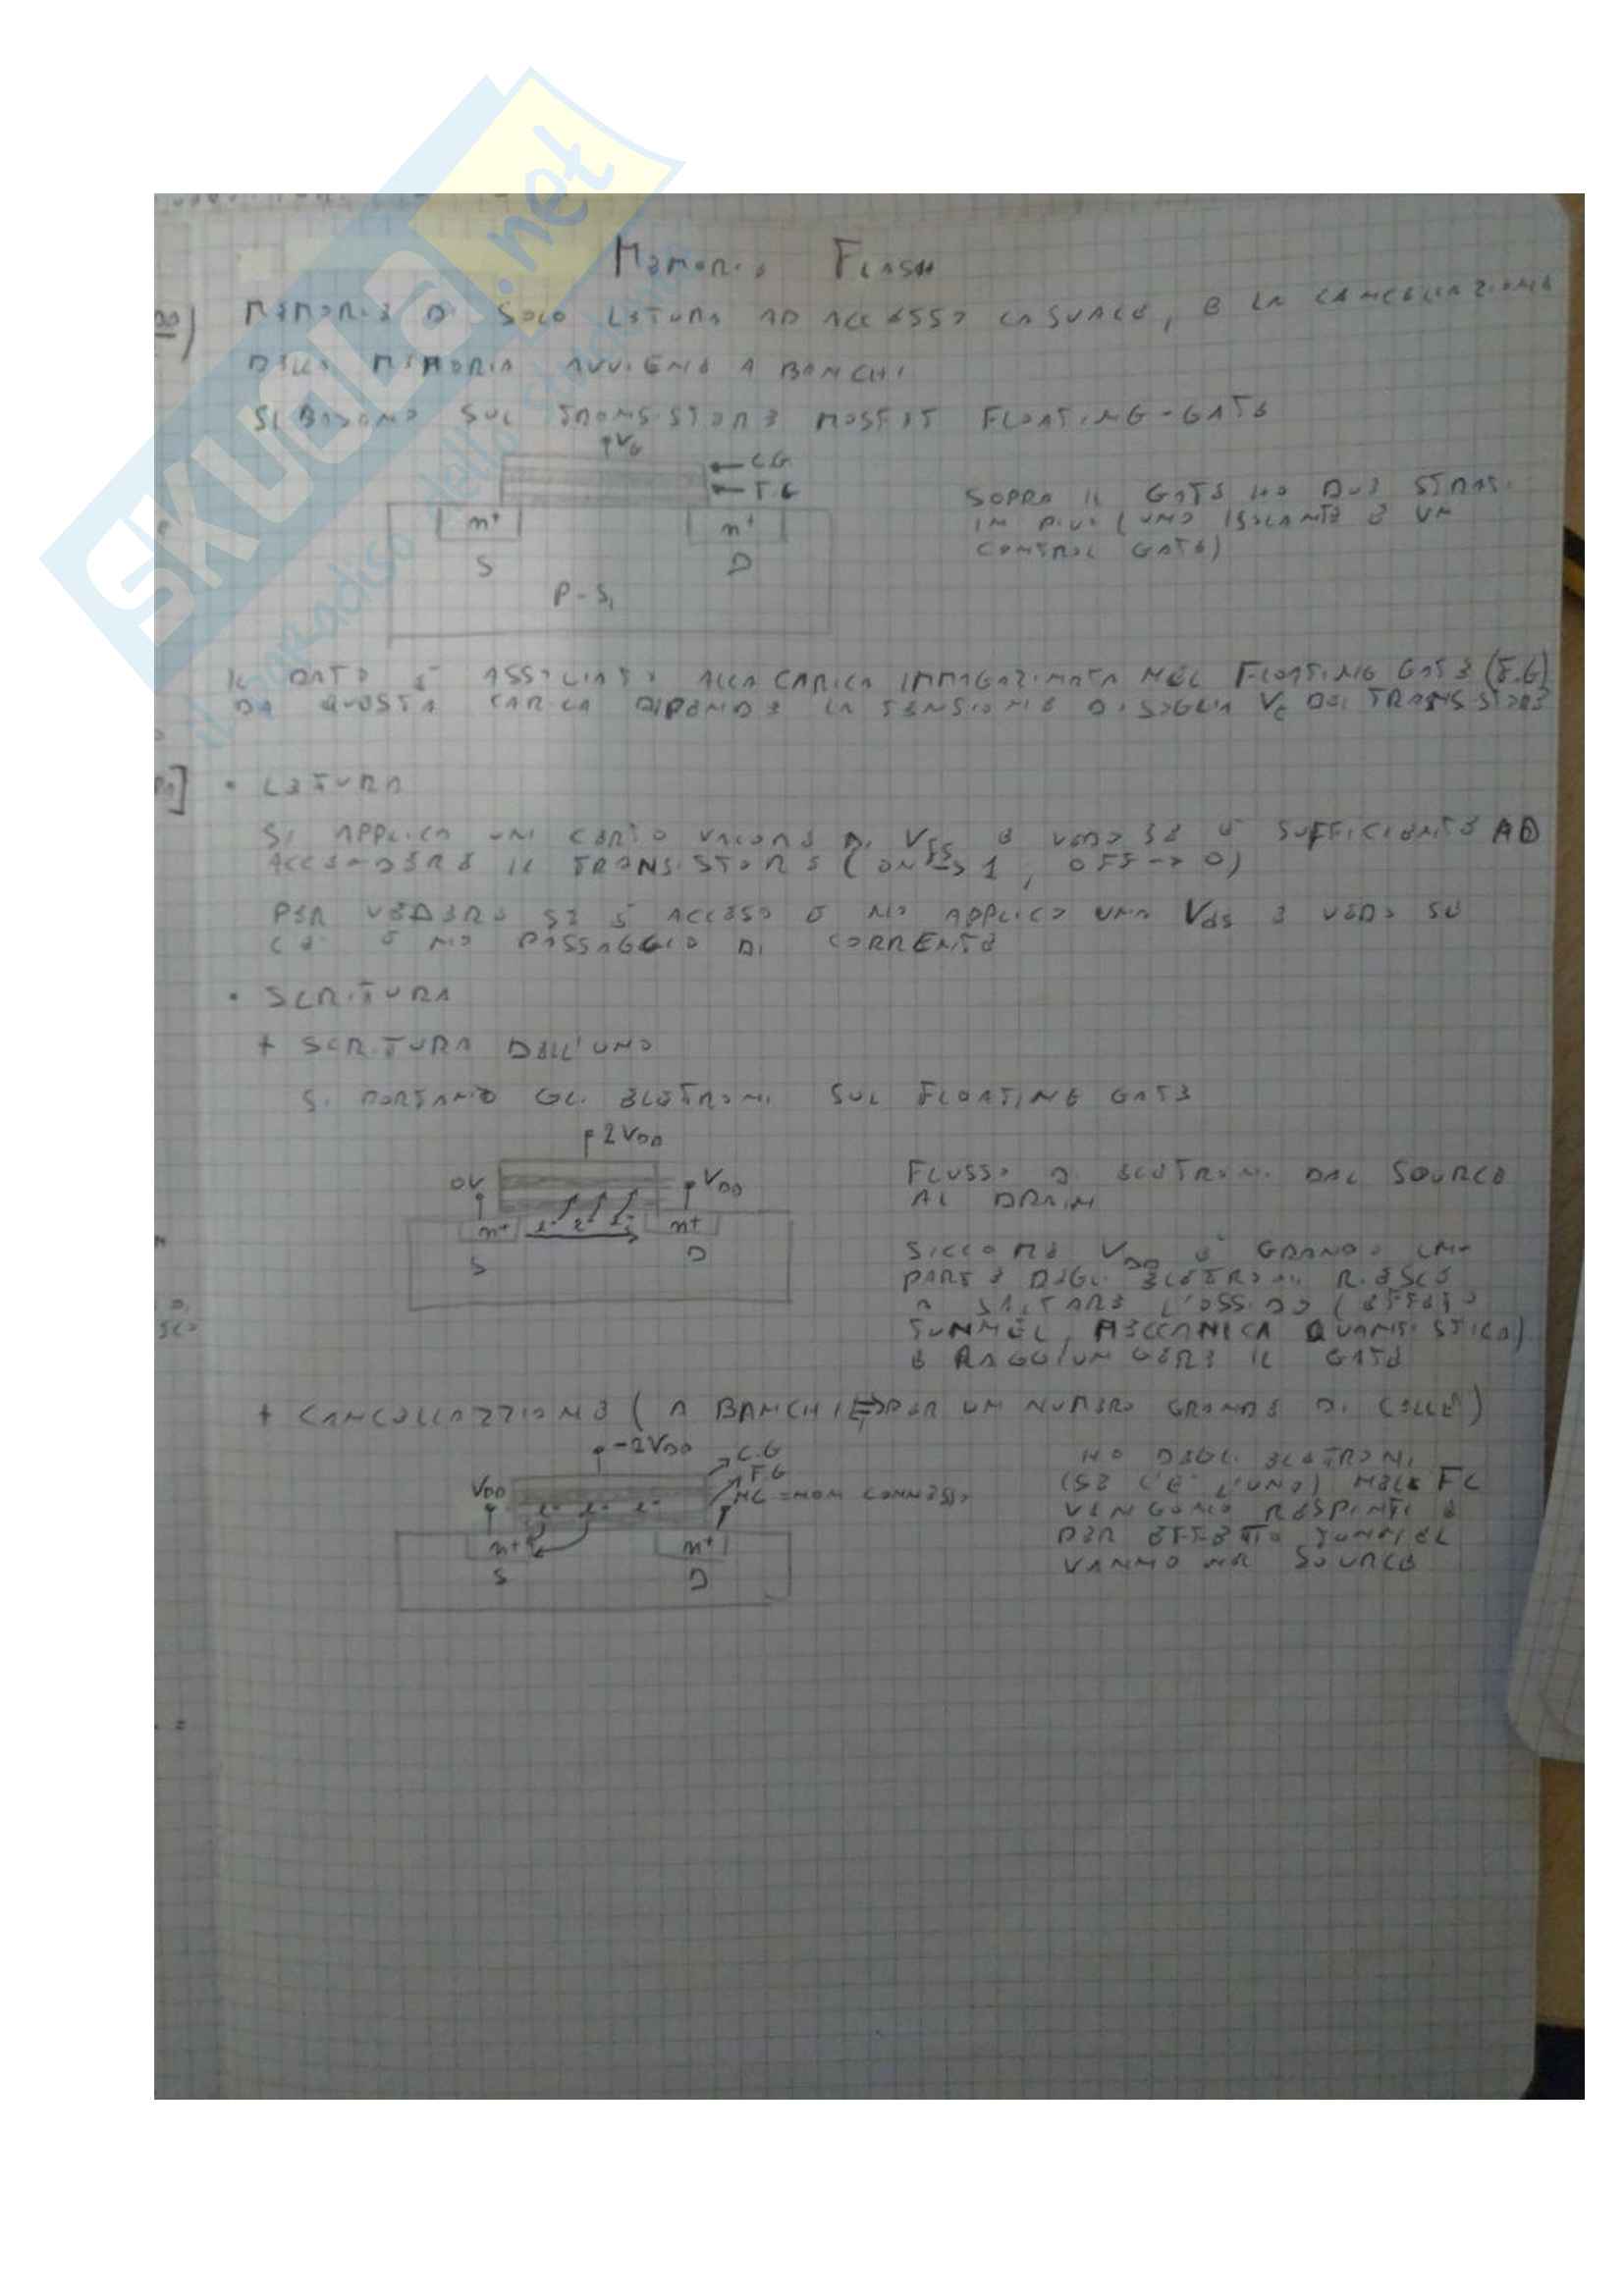 SKUOLA.net
il paradiso dello studente
Memorie Flash
MEMORIE DI SOLO LETURA AD ACCESSO CASUALE, E LA CANCELLAZIONE
DELLA MEMORIA AVVIENE A BANCHI
SI BASANO SUL TRANSISTORE MOSFET FLOATING-GATE
VG
C.G
F.G
n+ n+
S D
P-Si
SOPRA IL GATE HO DUE STRATI
IN PIU' (UNO ISOLANTE E UN
CONTROL GATE)
IL DATO È ASSOCIATO ALLA CARICA IMMAGAZINATA NEL FLOATING GATE (F.G)
DA QUESTA CARICA DIPENDE LA TENSIONE DI SOGLIA Vt DEL TRANSISTORE
• LETURA
SI APPLICA UN CERTO VALORE DI VGS E VEDO SE È SUFFICIENTE AD
ACCENDERE IL TRANSISTORE (ON → 1, OFF → 0)
PER VEDERE SE È ACCESO O NO APPLICO UNA Vds E VEDO SE
C'È O NO PASSAGGIO DI CORRENTE
• SCRITURA
+ SCRITURA DELL'UNO
SI PORTANO GLI ELETRONI SUL FLOATING GATE
2VDD
0V VDD
n+ e- e- e- n+
S D
FLUSSO DI ELETRONI DAL SOURCE
AL DRAIN
SICCOME VDD È GRANDE UNA
PARTE DEGLI ELETRONI RIESCE
A SALTARE L'OSSIDO (EFFETO
TUNNEL, MECCANICA QUANTISTICA)
E RAGGIUNGERE IL GATE
+ CANCELLAZZIONE (A BANCHI => PER UN NUMERO GRANDE DI CELLE)
-2VDD C.G
F.G
VDD NC = NON CONNESSO
e- e- e-
n+ n+
S D
HO DEGLI ELETRONI
(SE C'È L'UNO) NELL FG
VENGONO RESPINTI E
PER EFFETTO TUNNEL
VANNO NEL SOURCE